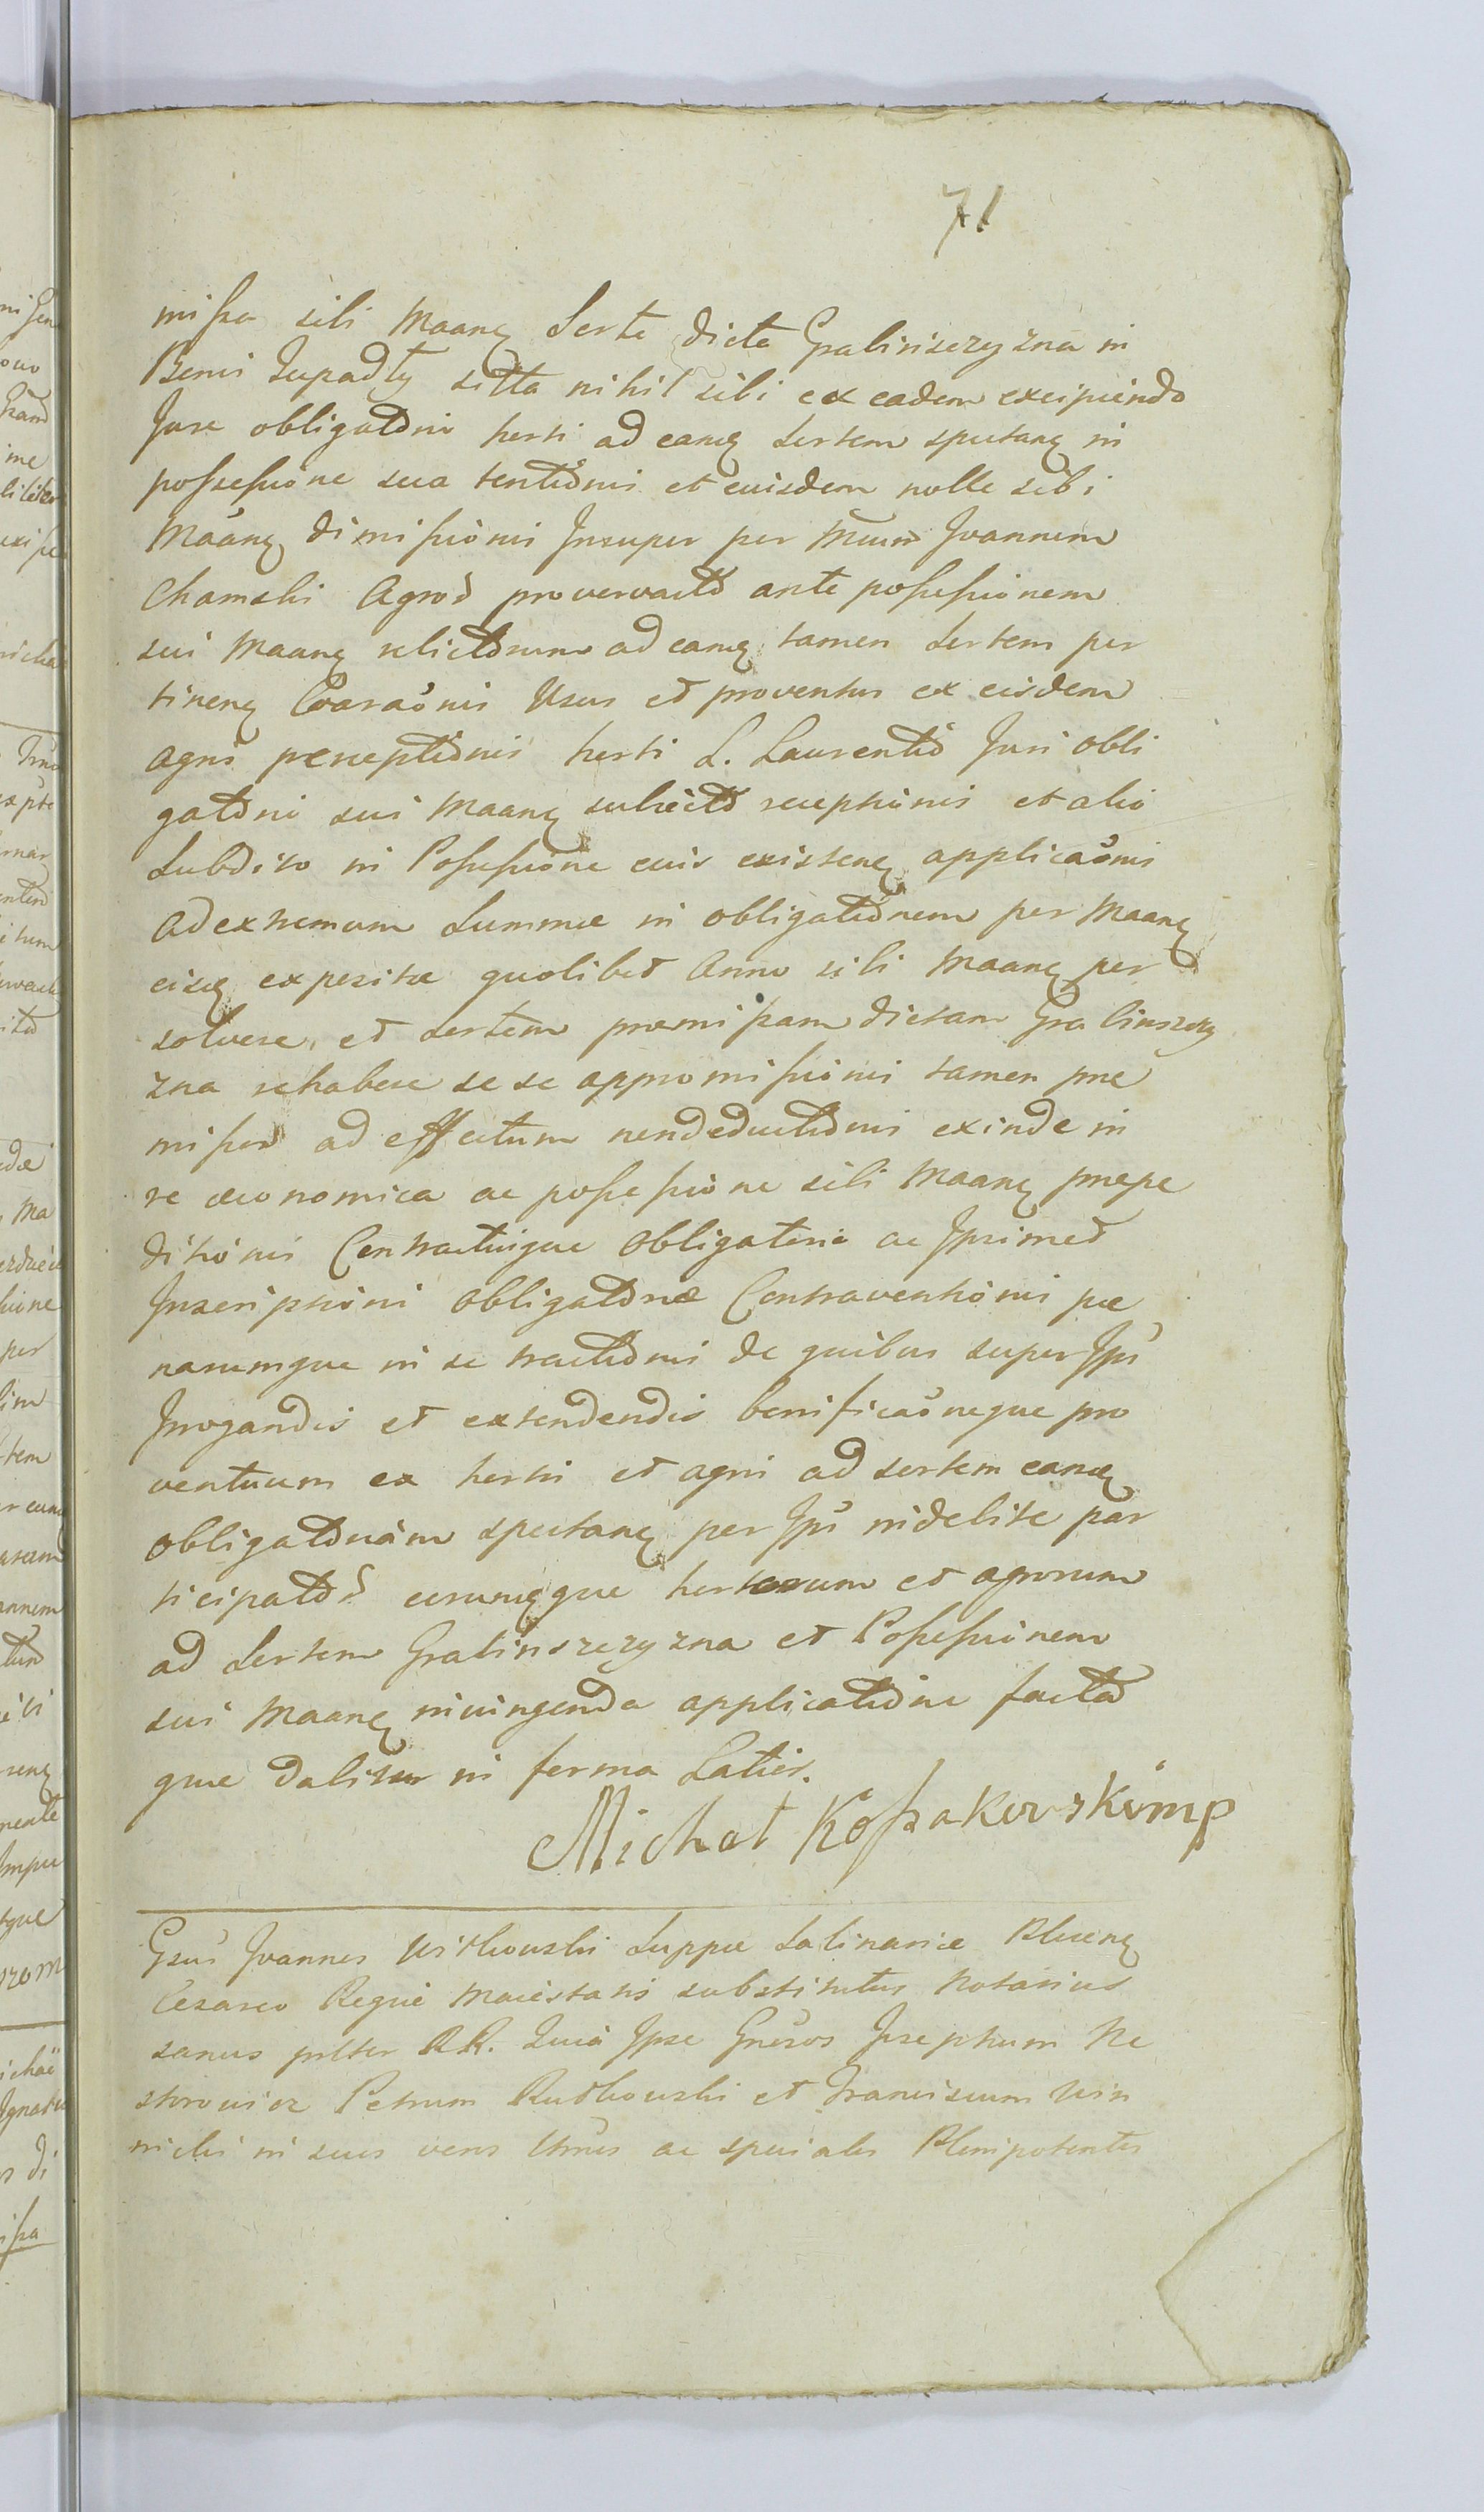 71
missa sibi Maanẽ Sorte dicta Grabinszczyzna in
Bonis Lupadły sitta nihil sibi ex eadem excipiendo
Jure obligatorio horti ad eamq sortem spectanẽ in
possessione sua tentionis et eiusdem nolle sibi
Maanẽ dimissionis Insuper per Mcum Joannem
Chamski Agrod ante possessionem
sui Maanẽ relictorum ad eamq tamen Sortem per
tinenẽ Usus et proventus ex eisdem
agris perceptionis horti L. Laurentio Juri obli
gatorio sui Maanẽ subiecto receptionis et alio
Subdito in Possessione eius existenẽ applicaõnis
ad extremum Summæ in obligationem per Maanẽ
eisq expositæ quolibet Anno sibi Maanẽ per
solvere, et Sortem præmissam dictam Grabinszczy
zna rehabere se se appromissionis tamen præ
missor ad effectum nondeductionis exinde in
re œconomica ac possessione sibi Maanẽ præpe
ditionis Contractuique Obligatorio ac Ipsimet
Inscriptioni obligatoriæ Contraventionis pœ
narumque in se tractionis de quibus super Ipso
Irrogandis et extendendis bonificaõneque pro
ventuum ex horti et agri ad sortem eamq
obligatoriam spectanẽ per Ipsũ indebite par
ticipator eorumqque hortorum et agrorum
ad Sortem Grabinszczyzna et Possessionem
sui Maanẽ iniungenda applicatione facta
que dabitur in forma Latior.
Michał Kossakowski mp
Gsus Joannes Witkowski Suppæ Salinariæ
Cesareo Regiæ Maiestatis substitutus Notarius
sanus pltter RR. Quia Ipse Gnẽsos Josephum Ne
storowicz Petrum Rutkowski et Franciscum Win
nicki in suos veros Umos ac speciales Plenipotentes